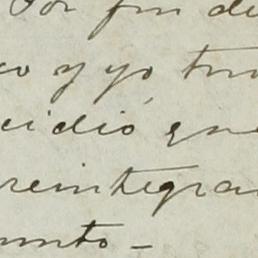 Por fin de
co y yo tu
cidió que
reintegra
unto -